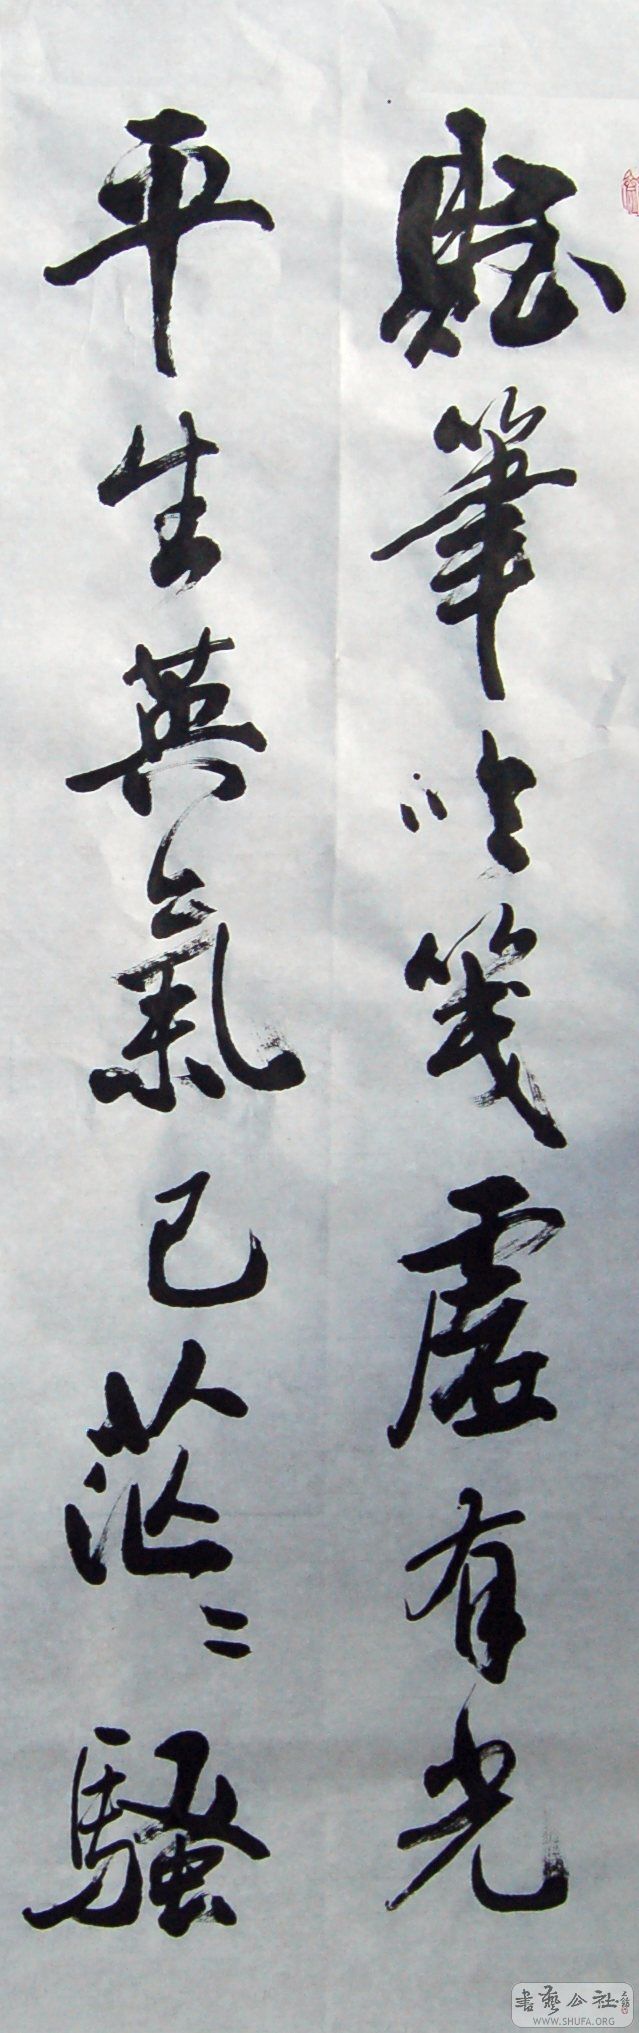 賦筆吟箋虛有光
平生英氣已茫〻騷
書藝公社
WWW.SHUFA.ORG